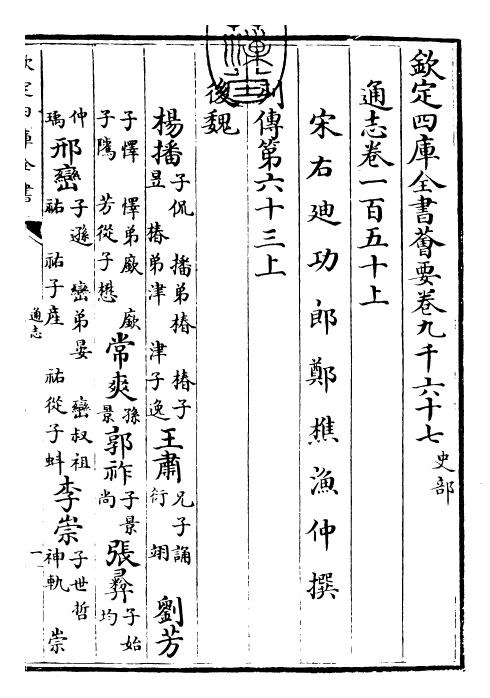 欽定四庫全書薈要卷九千六十七 史部
通志卷一百五十上
宋右迪功郎鄭樵漁仲撰
列傳第六十三上
後魏
楊播 子侃 播弟椿 椿子
昱 椿弟津 津子逸 王肅 兄子誦
衍 翊 劉芳
子懌 懌弟廞 廞
子隲 芳從子懋 常爽 孫
景 郭祚 子景
尚 張彝 子始
均
仲
瑀 邢巒 子遜 巒弟晏 巒叔祖
祐 祐子產 祐從子蚪 李崇 子世哲
神軌 崇
欽定四庫全書
通志
一